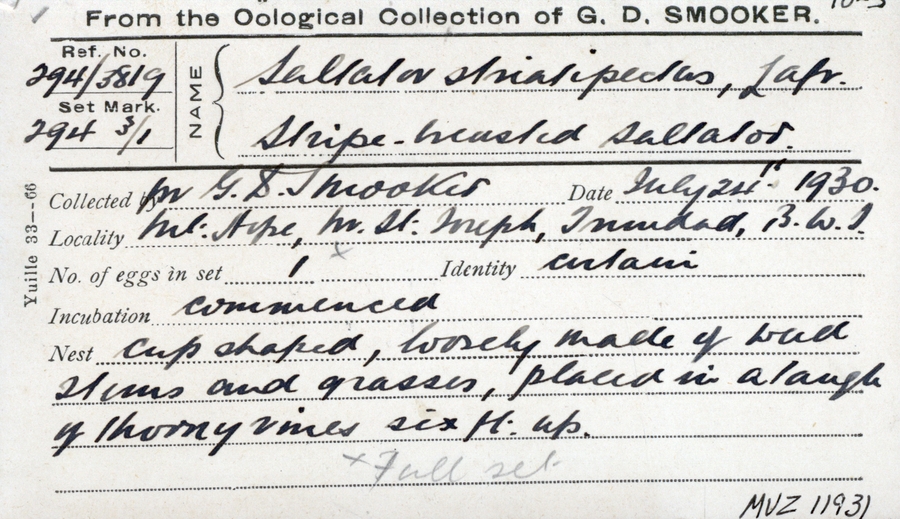 From the Oological Collection of G. D. SMOOKER.
Ref. No.
294/3819
Set Mark.
294 3/1
NAME
Saltator striatipectus, Lafr.
Stripe-breasted Saltator.
Collected for G. D. Smooker Date July 24th 1930.
Locality Mt. Hope, Nr. St. Joseph, Trinidad, B.W.I.
No. of eggs in set 1 x Identity certain
Incubation commenced
Nest cup shaped, loosely made of weed
stems and grasses, placed in a tangle
of thorny vines six ft. up.
x Full set
Yuille 33—66
MVZ 11931